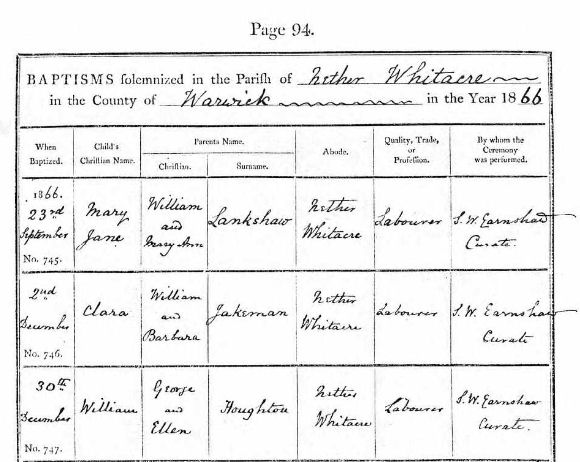 Page 94.
BAPTISMS solemnized in the Parish of Nether Whitacre
in the County of Warwick in the Year 1866
When Baptized.
Child's Christian Name.
Parents Name.
Christian.
Surname.
Abode.
Quality, Trade, or Profession.
By whom the Ceremony was performed.
1866.
23rd
September
No. 745.
Mary
Jane
William
and
Mary Ann
Lankshaw
Nether
Whitacre
Labourer
S. W. Earnshaw
Curate.
2nd
December
No. 746.
Clara
William
and
Barbara
Jakeman
Nether
Whitacre
Labourer
S. W. Earnshaw
Curate
30th
December
No. 747.
William
George
and
Ellen
Houghton
Nether
Whitacre
Labourer
S. W. Earnshaw
Curate.